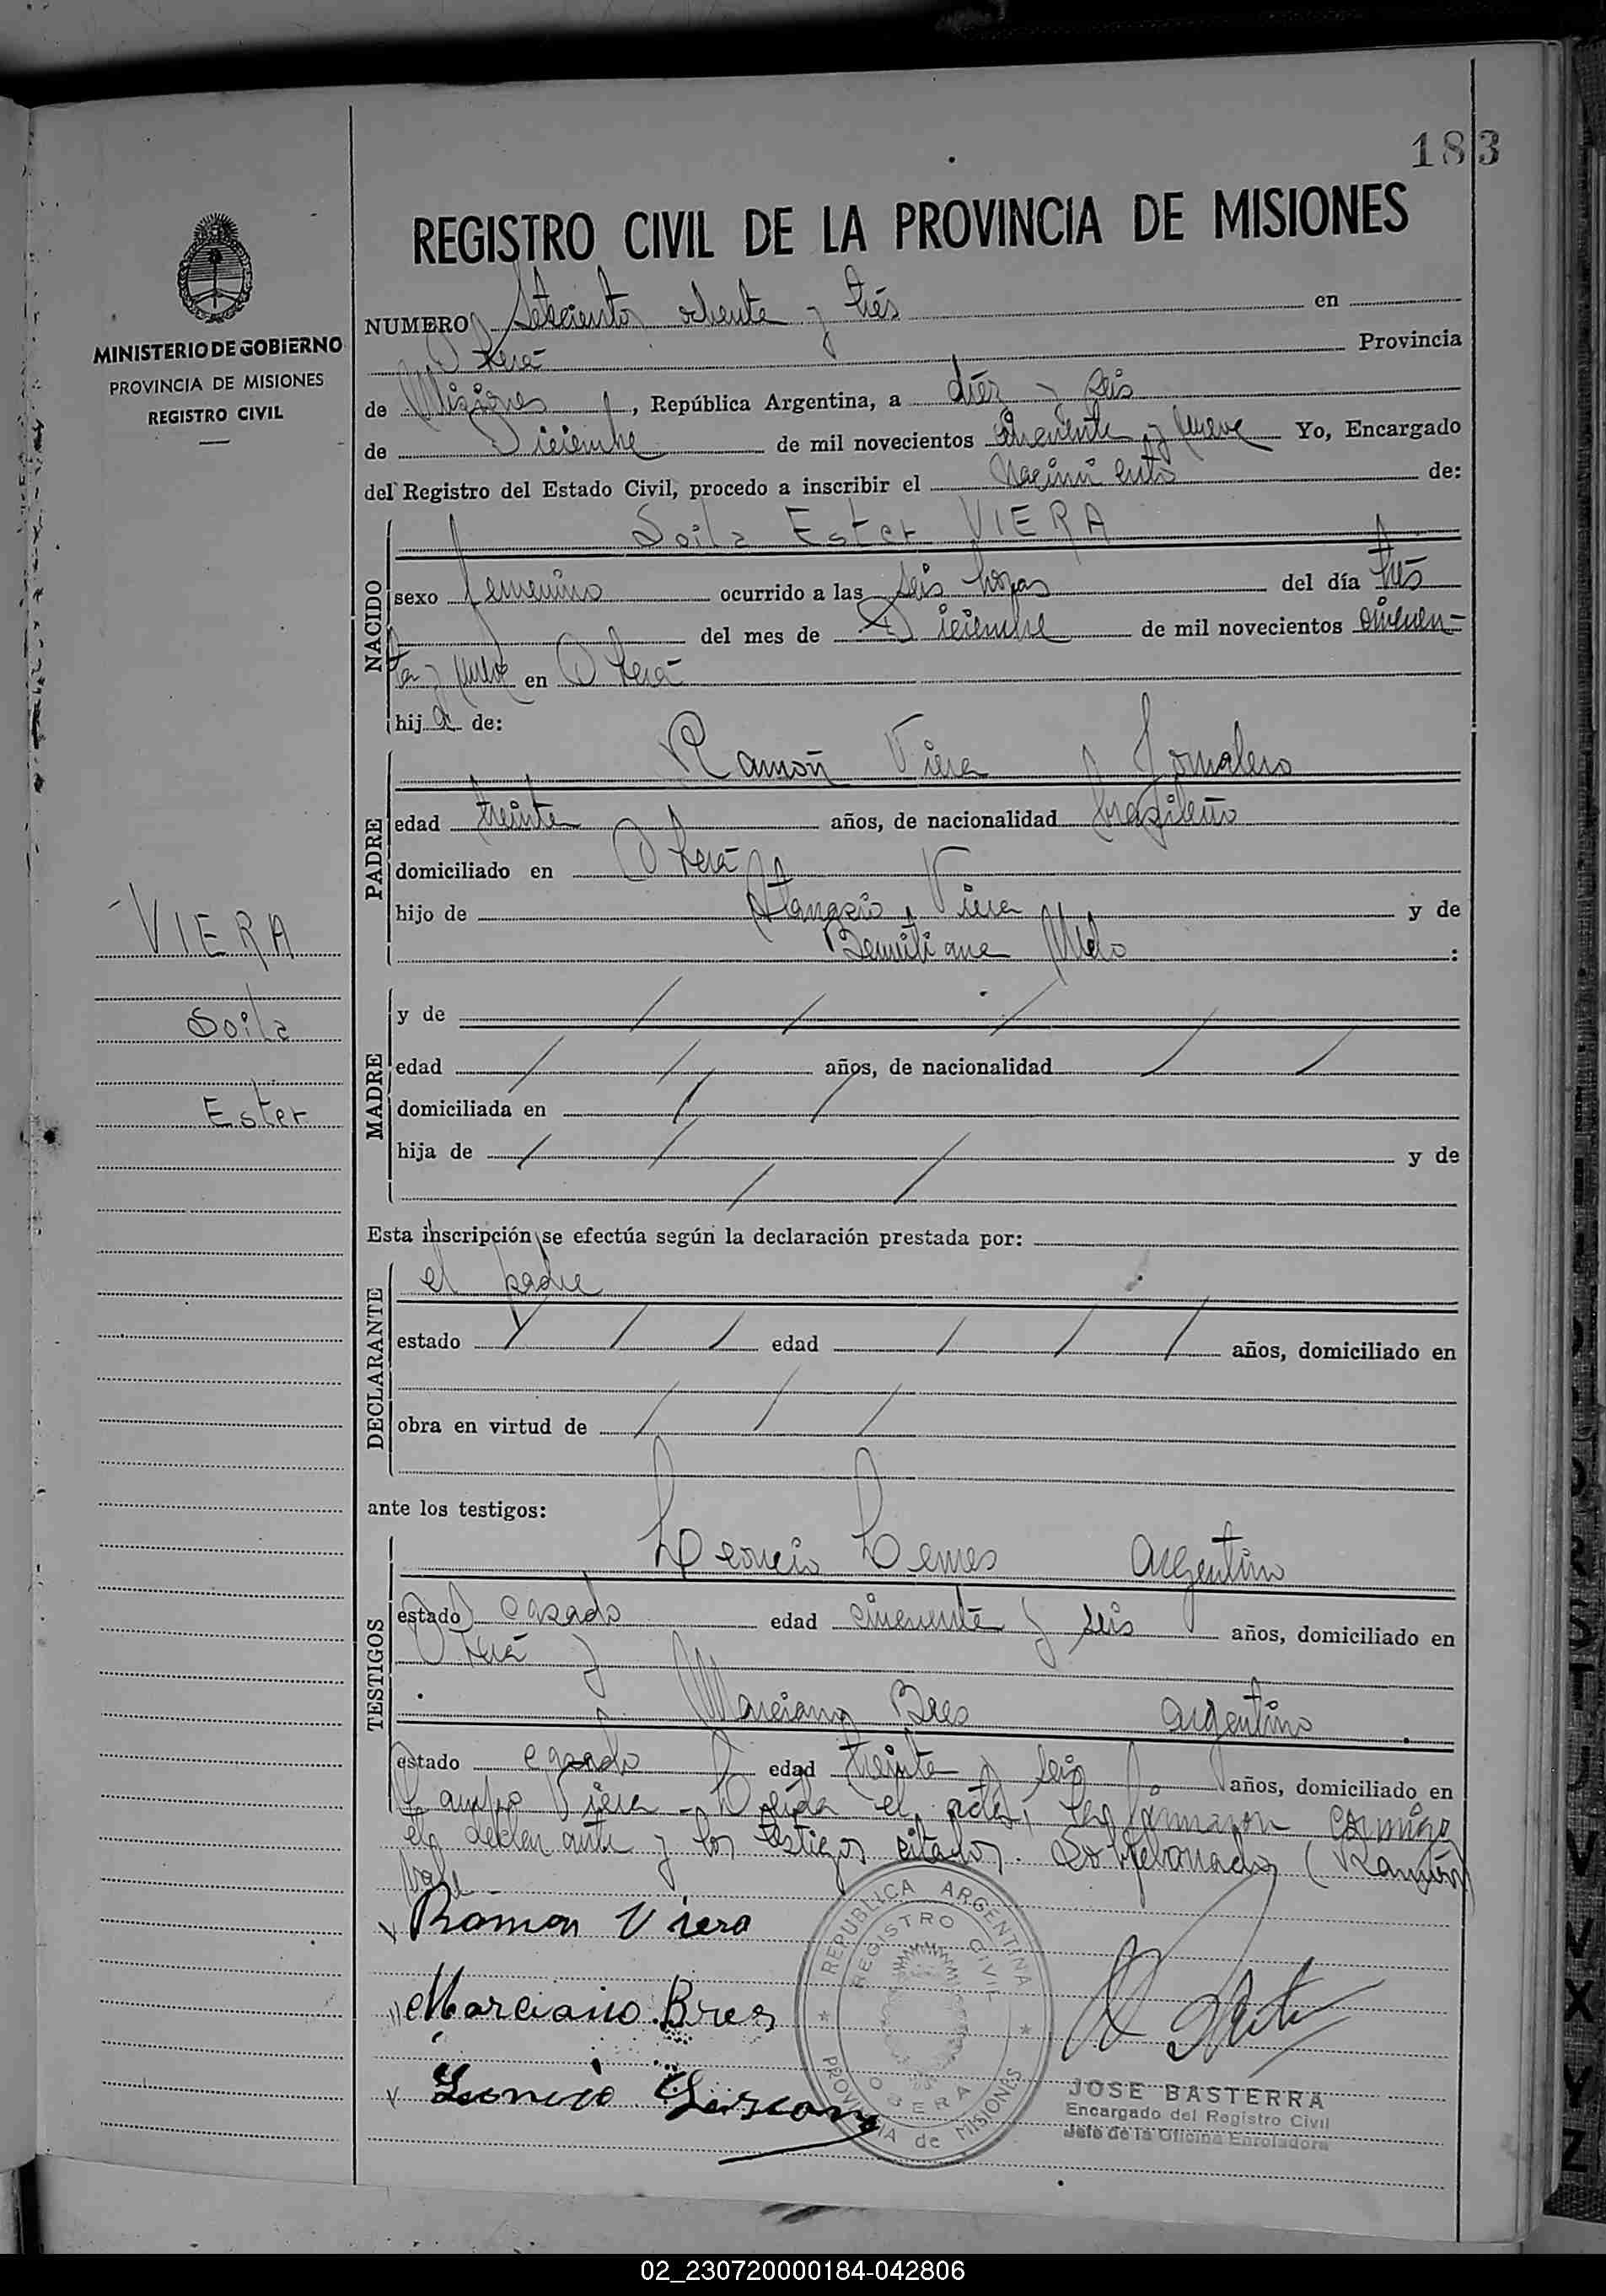 183
REGISTRO CIVIL DE LA PROVINCIA DE MISIONES
MINISTERIO DE GOBIERNO
PROVINCIA DE MISIONES
REGISTRO CIVIL
VIERA
Soila
Ester
NUMERO Setecientos ochenta y trés en
Oberá Provincia
de Misiones, República Argentina, a diéz y seis
de Diciembre de mil novecientos cincuenta y nueve Yo, Encargado
del Registro del Estado Civil, procedo a inscribir el nacimiento de:
NACIDO
Soila Ester VIERA
sexo femenino ocurrido a las seis horas del día trés
del mes de Diciembre de mil novecientos cincuen-
ta y nueve en Oberá
hija de:
PADRE
Ramón Viera Jornalero
edad treinta años, de nacionalidad brasileño
domiciliado en Oberá
hijo de Atanacio Viera y de
Melo :
MADRE
y de
edad años, de nacionalidad
domiciliada en
hija de y de
Esta inscripción se efectúa según la declaración prestada por:
DECLARANTE
el padre
estado edad años, domiciliado en
obra en virtud de
ante los testigos:
TESTIGOS
Leoncio Lemes Argentino
estado casado edad cincuenta y seis años, domiciliado en
Oberá y
Marciano Bres argentino
estado casado edad treinta y seis años, domiciliado en
Campo Viera - Leída el acta, la firmaron conmigo
el declarante y los testigos citados. Sobreborrado (Ramón)
vale
Ramon Viera
Marciano Bres
REPUBLICA ARGENTINA
REGISTRO CIVIL
OBERA
PROVINCIA de MISIONES
JOSE BASTERRA
Encargado del Registro Civil
Jefe de la Oficina Enroladora
02_230720000184-042806